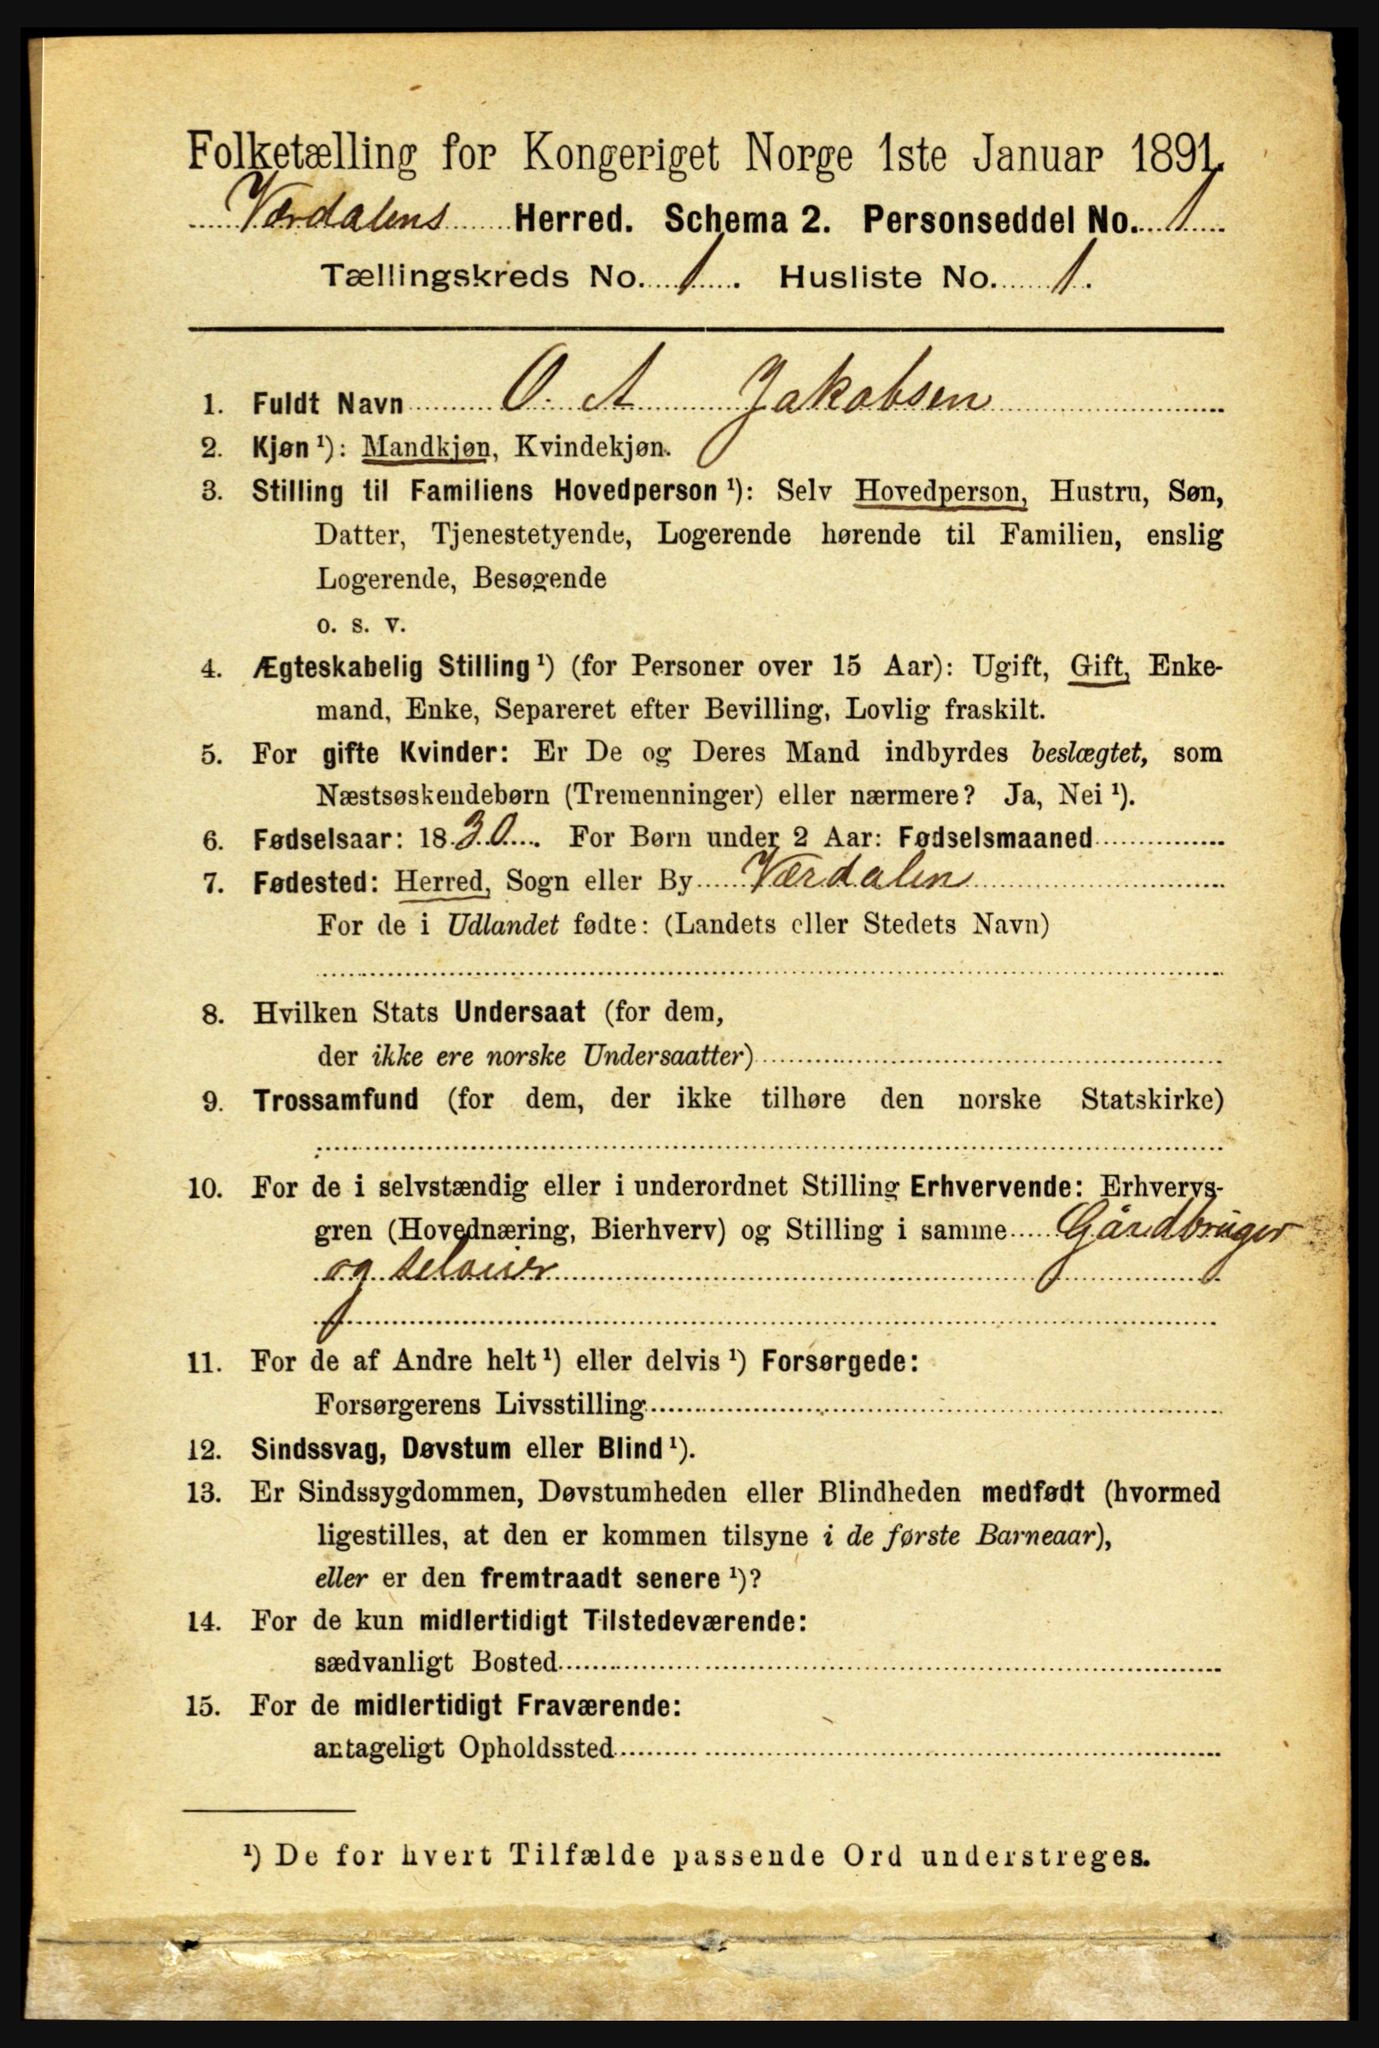 Folketælling for Kongeriget Norge 1ste Januar 1891.
Værdalens Herred. Schema 2. Personseddel No. 1
Tællingskreds No. 1. Husliste No. 1.
1. Fuldt Navn O. A Jakobsen
2. Kjøn ¹): Mandkjøn, Kvindekjøn.
3. Stilling til Familiens Hovedperson ¹): Selv Hovedperson, Hustru, Søn,
Datter, Tjenestetyende, Logerende hørende til Familien, enslig
Logerende, Besøgende
o. s. v.
4. Ægteskabelig Stilling ¹) (for Personer over 15 Aar): Ugift, Gift, Enke-
mand, Enke, Separeret efter Bevilling, Lovlig fraskilt.
5. For gifte Kvinder: Er De og Deres Mand indbyrdes beslægtet, som
Næstsøskendebørn (Tremenninger) eller nærmere? Ja, Nei ¹).
6. Fødselsaar: 1830. For Børn under 2 Aar: Fødselsmaaned
7. Fødested: Herred, Sogn eller By Værdalen
For de i Udlandet fødte: (Landets eller Stedets Navn)
8. Hvilken Stats Undersaat (for dem,
der ikke ere norske Undersaatter)
9. Trossamfund (for dem, der ikke tilhøre den norske Statskirke)
10. For de i selvstændig eller i underordnet Stilling Erhvervende: Erhvervs-
gren (Hovednæring, Bierhverv) og Stilling i samme Gårdbruger
og selveier
11. For de af Andre helt ¹) eller delvis ¹) Forsørgede:
Forsørgerens Livsstilling
12. Sindssvag, Døvstum eller Blind ¹).
13. Er Sindssygdommen, Døvstumheden eller Blindheden medfødt (hvormed
ligestilles, at den er kommen tilsyne i de første Barneaar),
eller er den fremtraadt senere ¹)?
14. For de kun midlertidigt Tilstedeværende:
sædvanligt Bosted
15. For de midlertidigt Fraværende:
antageligt Opholdssted
¹) De for hvert Tilfælde passende Ord understreges.